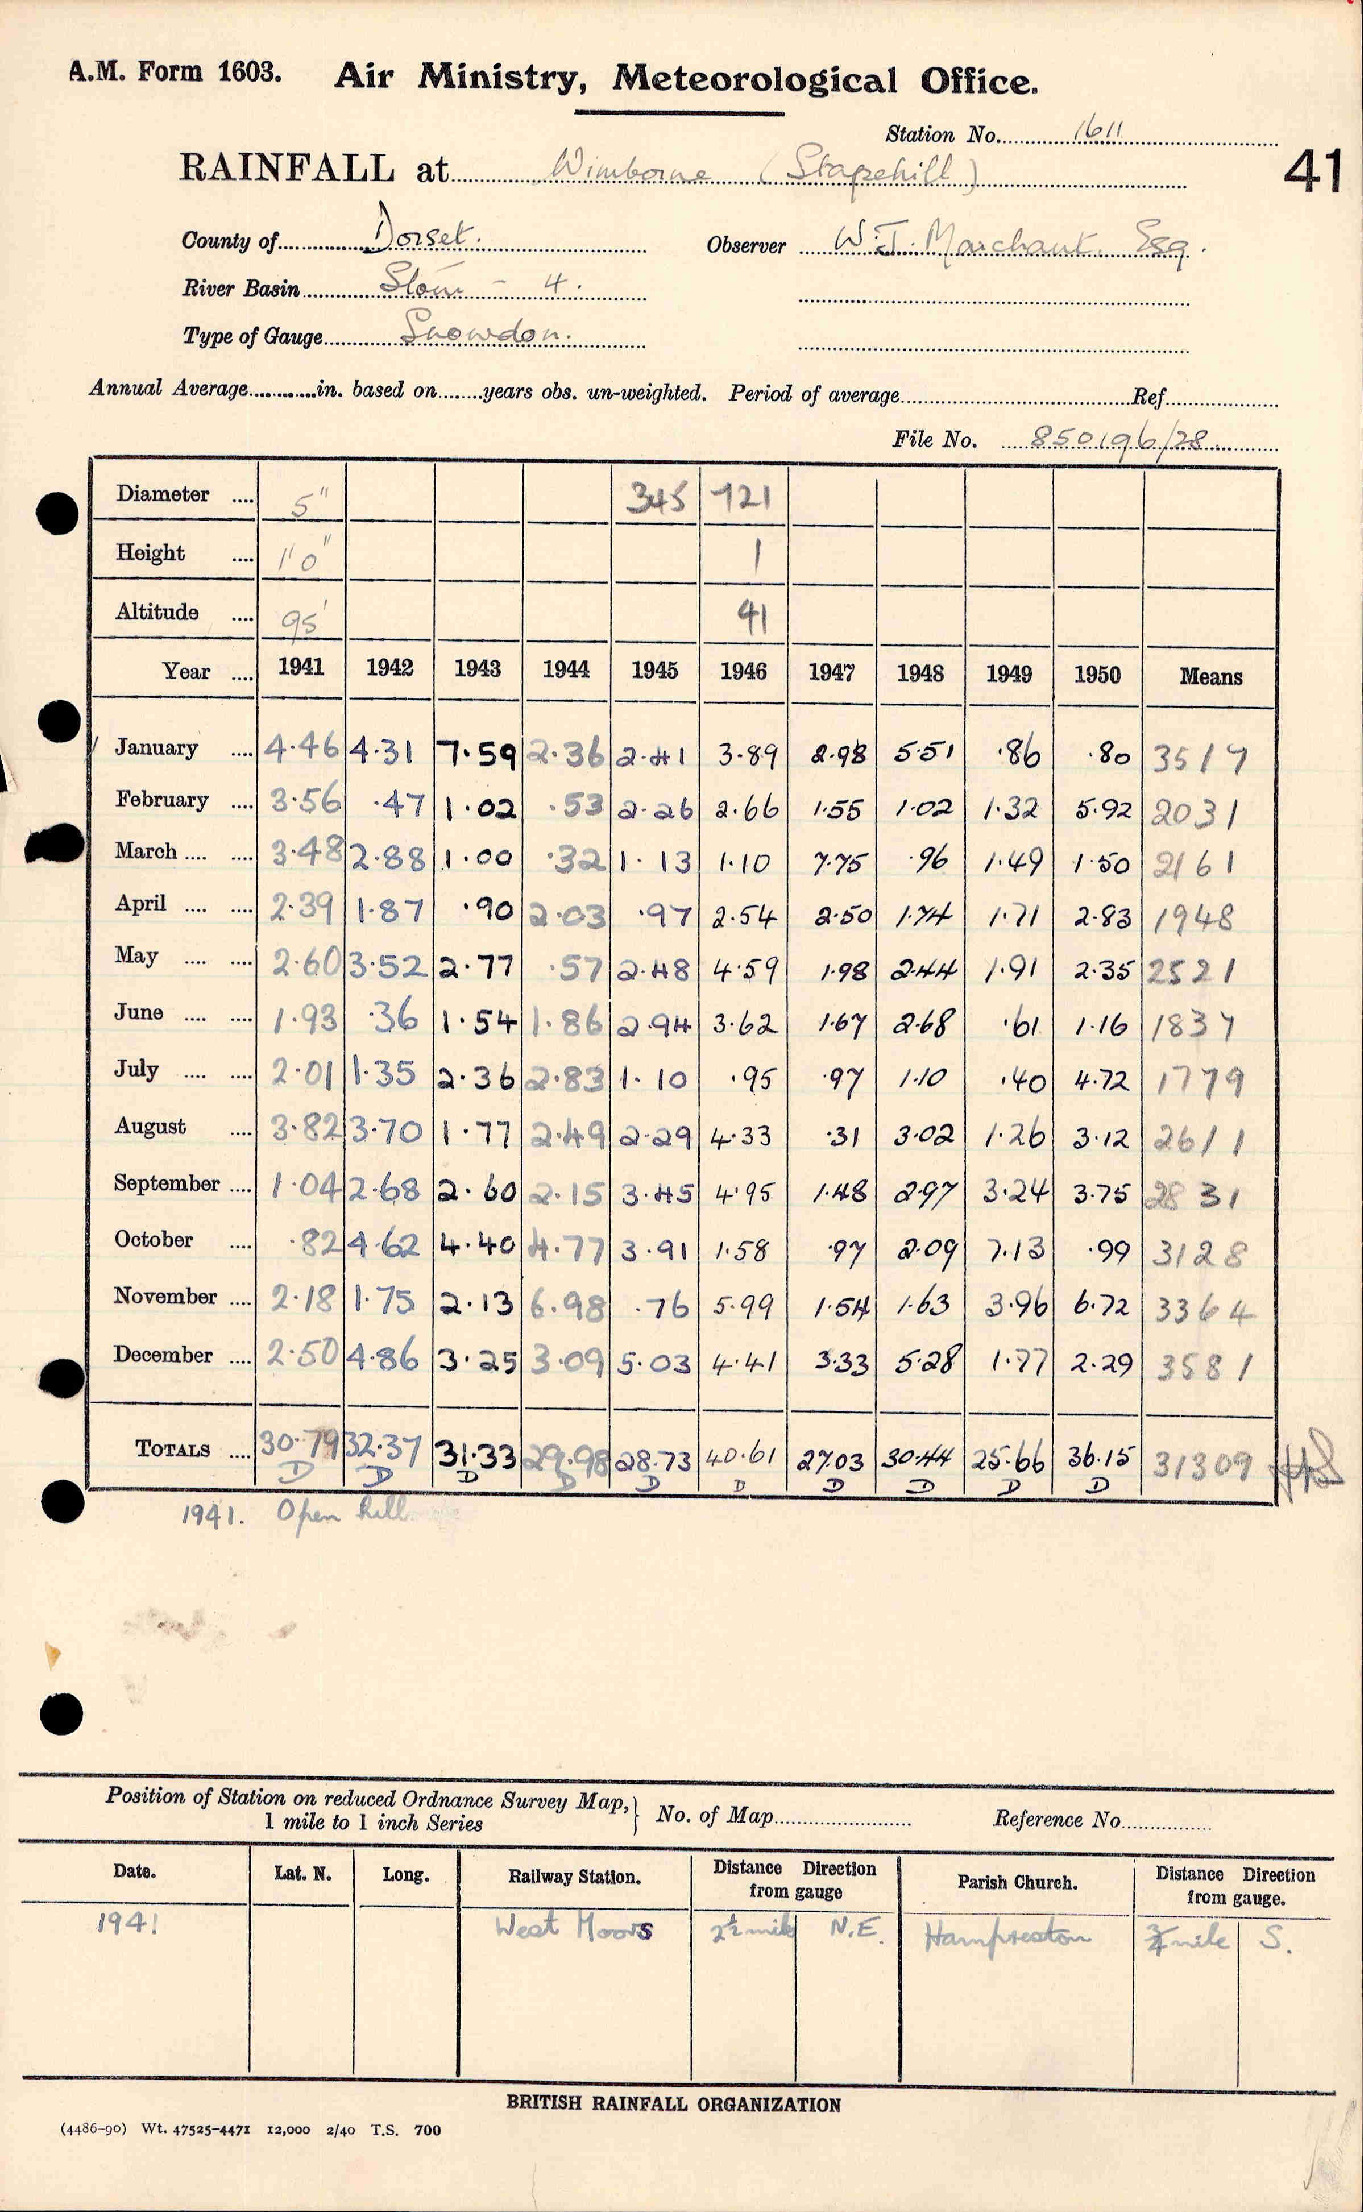 A.M. Form 1603. Air Ministry, Meteorological Office.
Station No. 1611
RAINFALL at Wimborne (Stapehill) 41
County of Dorset. Observer W.J. Marchant. Esq.
River Basin Stour - 4.
Type of Gauge Snowdon.
Annual Average in. based on years obs. un-weighted. Period of average Ref
File No. 850196/28
Diameter 5" 345 721
Height 1' 0" 1
Altitude 95' 41
Year 1941 1942 1943 1944 1945 1946 1947 1948 1949 1950 Means
January 4.46 4.31 7.59 2.36 2.41 3.89 2.98 5.51 .86 .80 3517
February 3.56 .47 1.02 .53 2.26 2.66 1.55 1.02 1.32 5.92 2031
March 3.48 2.88 1.00 .32 1.13 1.10 7.75 .96 1.49 1.50 2161
April 2.39 1.87 .90 2.03 .97 2.54 2.50 1.74 1.71 2.83 1948
May 2.60 3.52 2.77 .57 2.48 4.59 1.98 2.44 1.91 2.35 2521
June 1.93 .36 1.54 1.86 2.94 3.62 1.67 2.68 .61 1.16 1837
July 2.01 1.35 2.36 2.83 1.10 .95 .97 1.10 .40 4.72 1779
August 3.82 3.70 1.77 2.49 2.29 4.33 .31 3.02 1.26 3.12 2611
September 1.04 2.68 2.60 2.15 3.45 4.95 1.48 2.97 3.24 3.75 2831
October .82 4.62 4.40 4.77 3.91 1.58 .97 2.09 7.13 .99 3128
November 2.18 1.75 2.13 6.98 .76 5.99 1.54 1.63 3.96 6.72 3364
December 2.50 4.86 3.25 3.09 5.03 4.41 3.33 5.28 1.77 2.29 3581
TOTALS 30.79 32.37 31.33 29.98 28.73 40.61 27.03 30.44 25.66 36.15 31309
D D D D D D D D D D
1941. Open hill
Position of Station on reduced Ordnance Survey Map, 1 mile to 1 inch Series } No. of Map Reference No.
Date. Lat. N. Long. Railway Station. Distance Direction from gauge Parish Church. Distance Direction from gauge.
1941 West Moors 2½ mile N.E. Hampreston ¾ mile S.
BRITISH RAINFALL ORGANIZATION
(4486-90) Wt. 47525-4471 12,000 2/40 T.S. 700